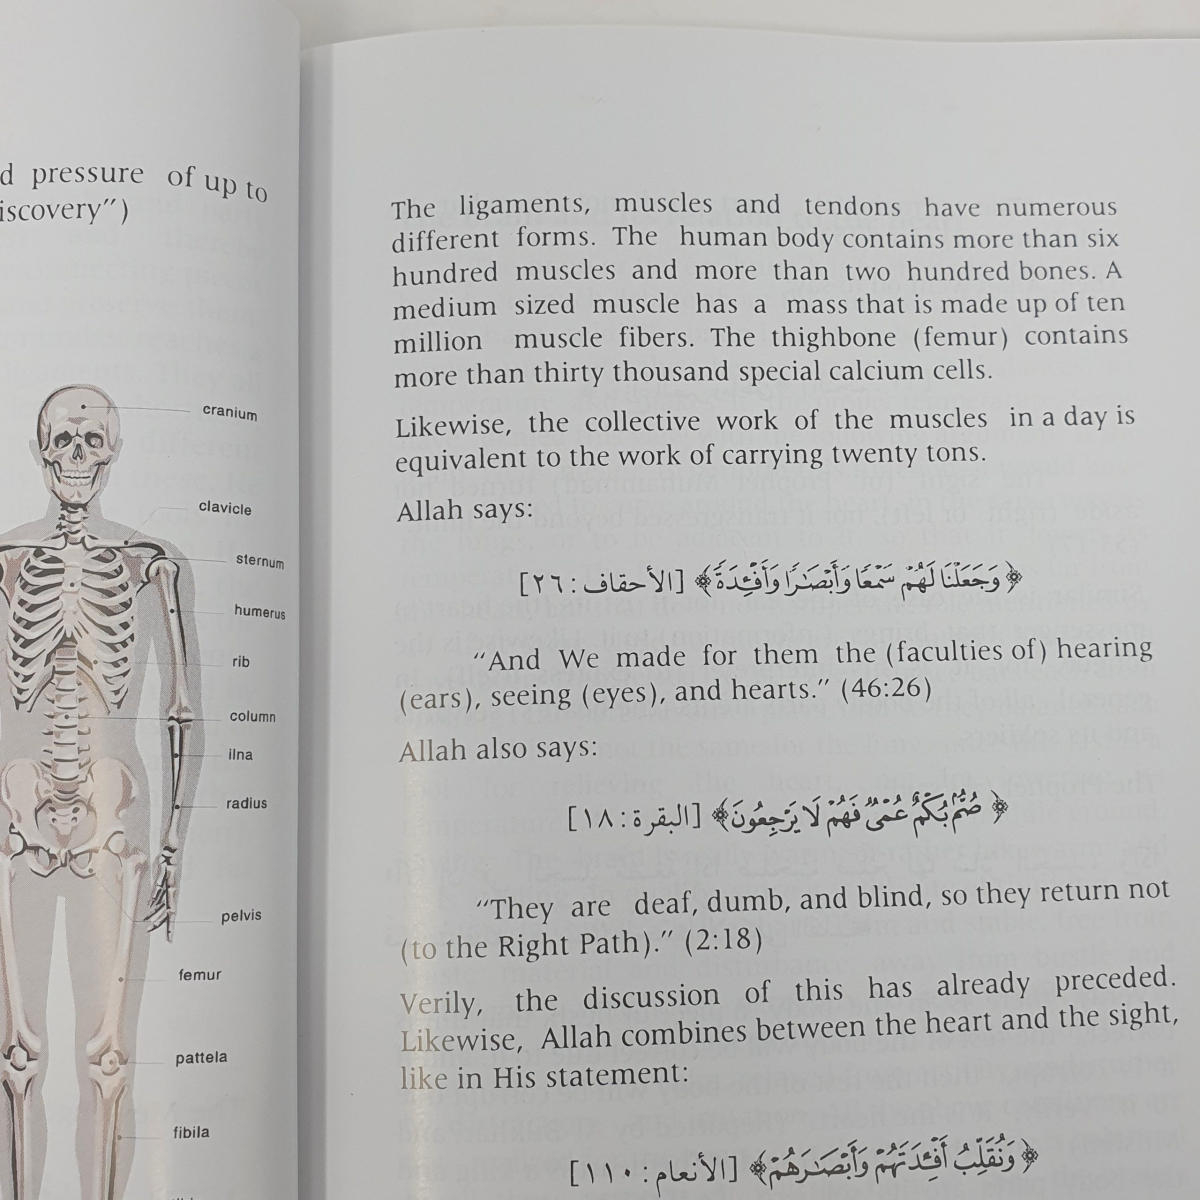 d pressure of up to
iscovery")
cranium
clavicle
sternum
humerus
rib
column
ilna
radius
pelvis
femur
pattela
fibila
The ligaments, muscles and tendons have numerous
different forms. The human body contains more than six
hundred muscles and more than two hundred bones. A
medium sized muscle has a mass that is made up of ten
million muscle fibers. The thighbone (femur) contains
more than thirty thousand special calcium cells.
Likewise, the collective work of the muscles in a day is
equivalent to the work of carrying twenty tons.
Allah says:
﴿ وَجَعَلْنَا لَهُمْ سَمْعًا وَأَبْصَٰرًا وَأَفْـِٔدَةً ﴾ [الأحقاف: ٢٦]
"And We made for them the (faculties of) hearing
(ears), seeing (eyes), and hearts." (46:26)
Allah also says:
﴿ صُمٌّۢ بُكْمٌ عُمْىٌ فَهُمْ لَا يَرْجِعُونَ ﴾ [البقرة: ١٨]
"They are deaf, dumb, and blind, so they return not
(to the Right Path)." (2:18)
Verily, the discussion of this has already preceded.
Likewise, Allah combines between the heart and the sight,
like in His statement:
﴿ وَنُقَلِّبُ أَفْـِٔدَتَهُمْ وَأَبْصَٰرَهُمْ ﴾ [الأنعام: ١١٠]